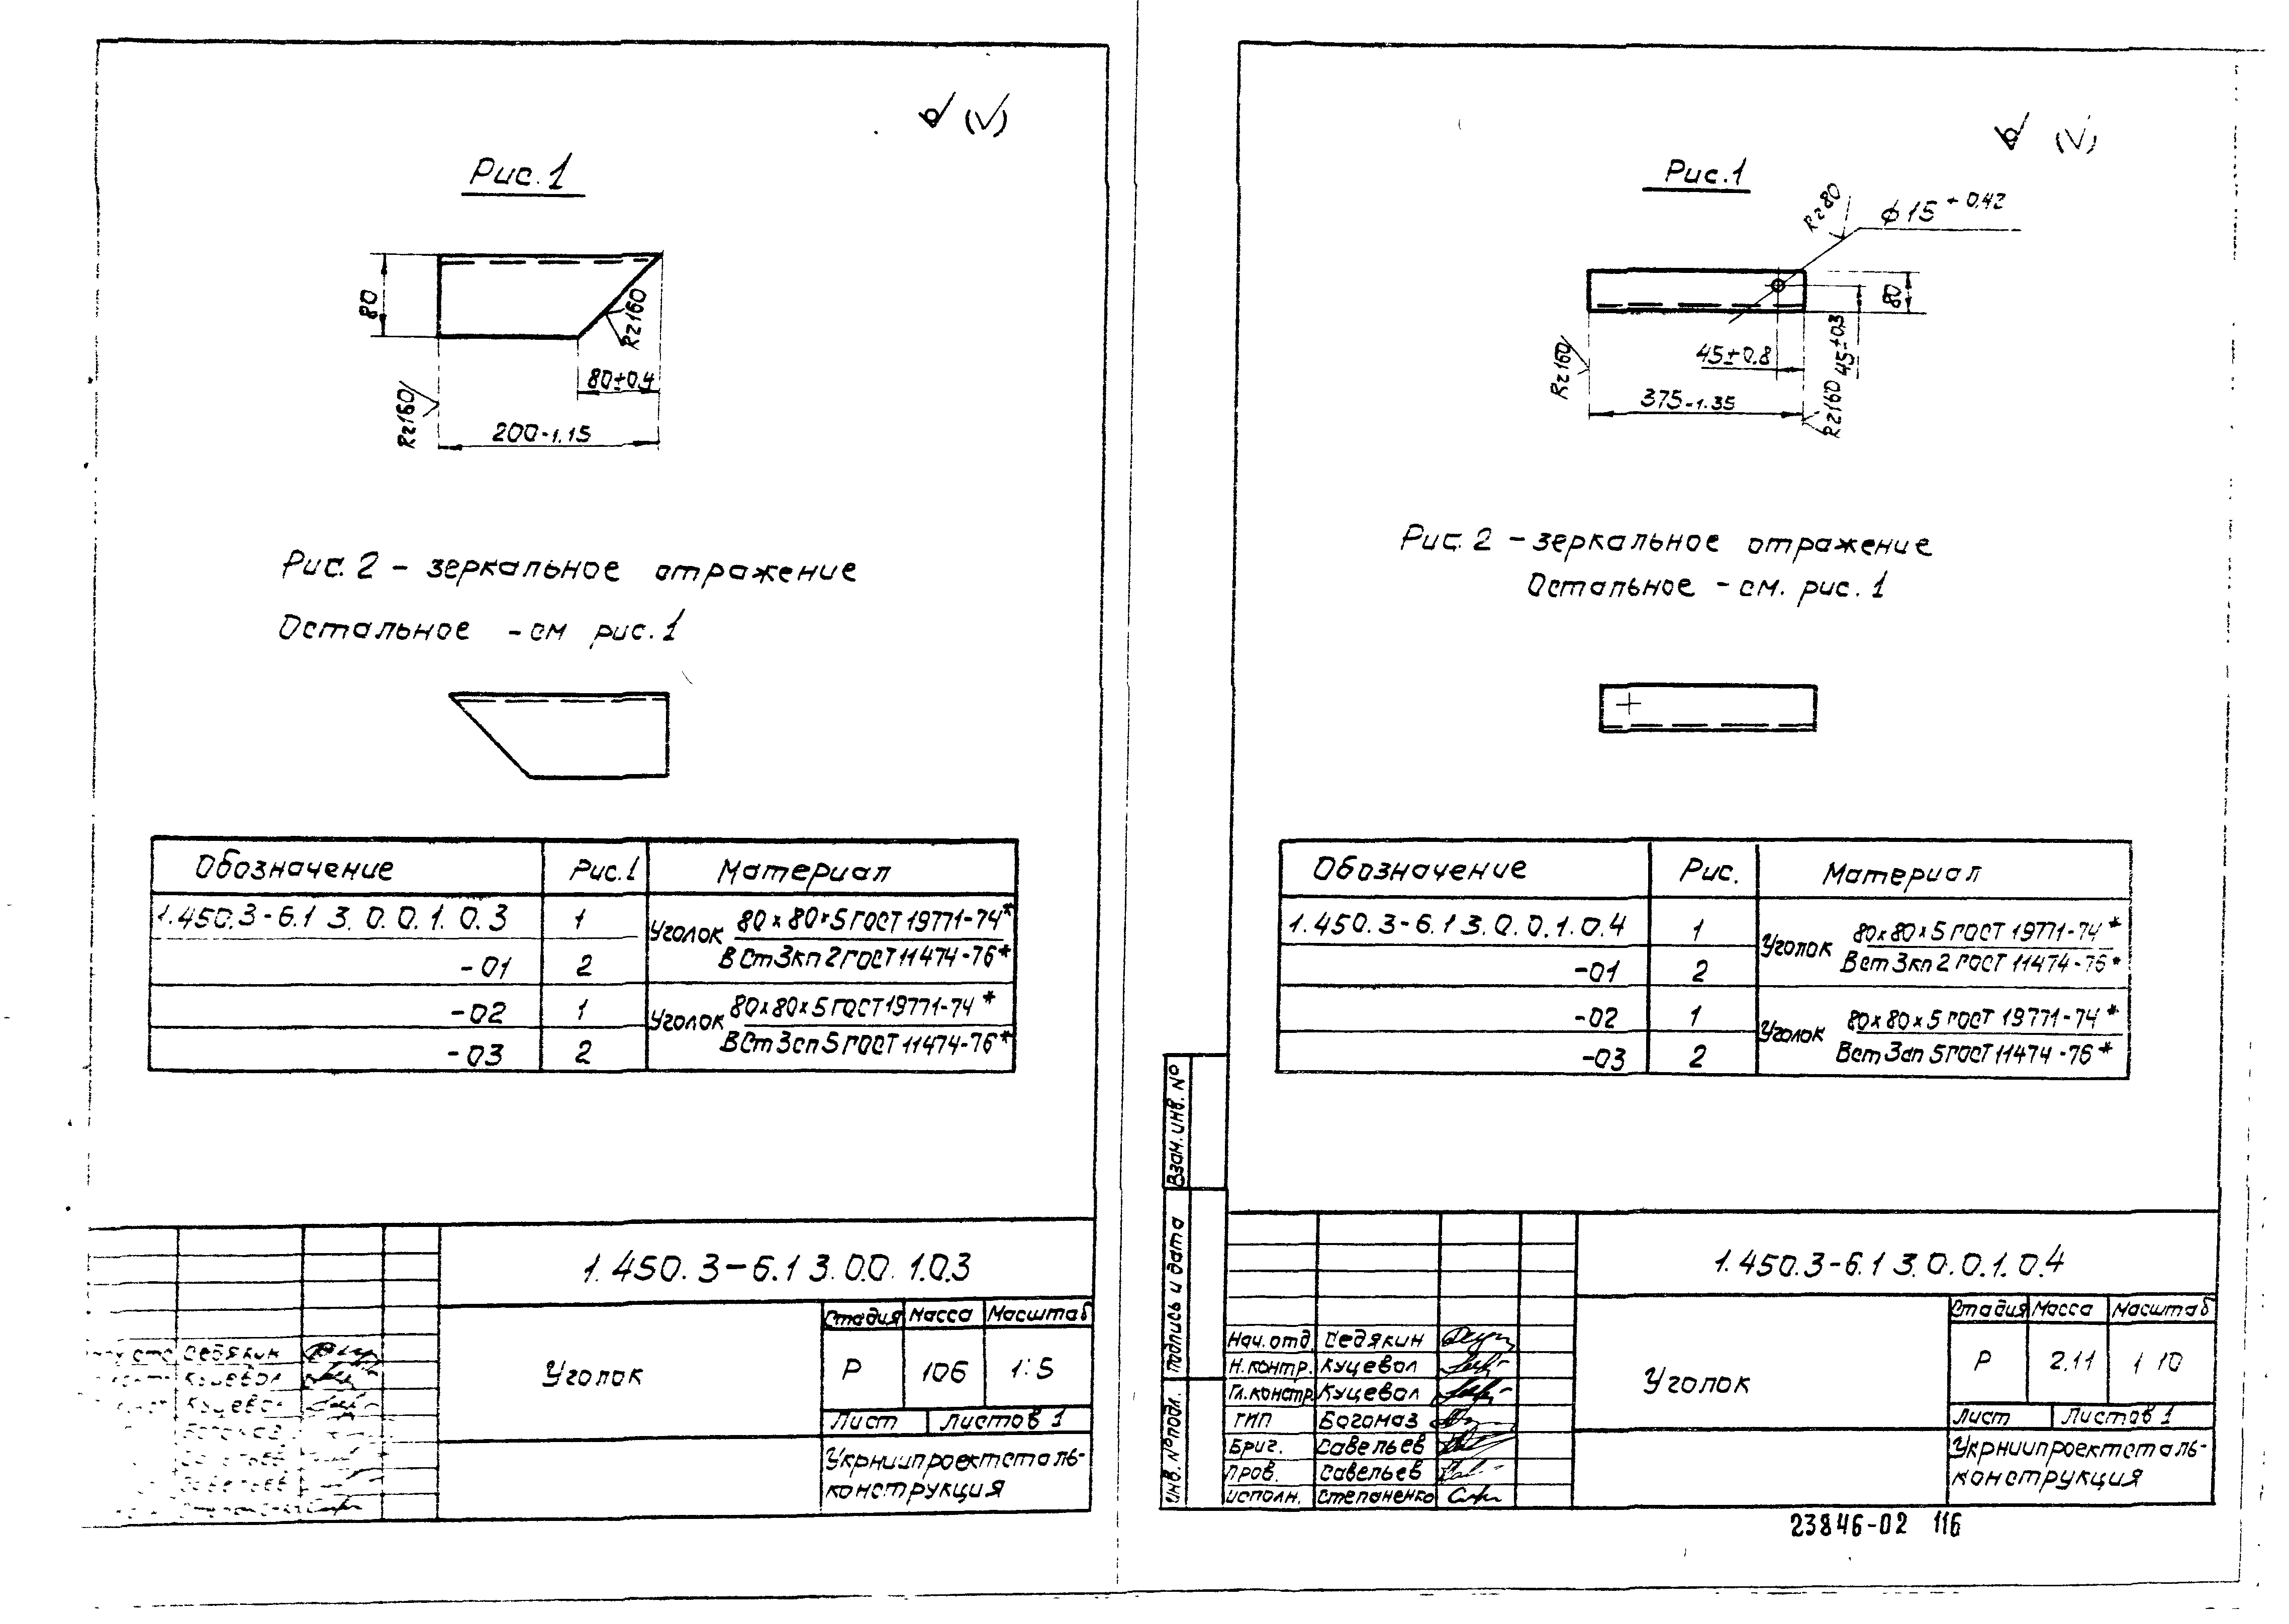 Рис.1
80
Rz160
80±0.4
Rz160
200-1.15
Рис. 2 - зеркальное отражение
Остальное - см рис.1
Обозначение Рис.1 Материал
1.450.3-6.1 3.0.0.1.0.3 1 Уголок 80х80х5 ГОСТ 19771-74*
-01 2 ВСт3кп2 ГОСТ 11474-76*
-02 1 Уголок 80х80х5 ГОСТ 19771-74*
-03 2 ВСт3сп5 ГОСТ 11474-76*
1.450.3-6.1 3.0.0.1.0.3
Стадия Масса Масштаб
Уголок Р 106 1:5
Лист Листов 1
Укрниипроектсталь-
конструкция
Седякин
Куцевол
Рис.1
Rz80
⌀15 +0.42
80
45±0.3
45±0.8
Rz160
375-1.35
Rz160
Рис. 2 - зеркальное отражение
Остальное - см. рис. 1
Обозначение Рис. Материал
1.450.3-6.1 3.0.0.1.0.4 1 Уголок 80х80х5 ГОСТ 19771-74*
-01 2 Вст3кп2 ГОСТ 11474-76*
-02 1 Уголок 80х80х5 ГОСТ 19771-74*
-03 2 Вст3сп5 ГОСТ 11474-76*
Взам. инв. №
Подпись и дата
Инв. № подл.
1.450.3-6.1 3.0.0.1.0.4
Стадия Масса Масштаб
Уголок Р 2.11 1 10
Лист Листов 1
Укрниипроектсталь-
конструкция
Нач. отд. Седякин
Н. контр. Куцевол
Гл. констр. Куцевол
ГИП Богомаз
Бриг. Савельев
Пров. Савельев
Исполн. Степаненко
23846-02 116